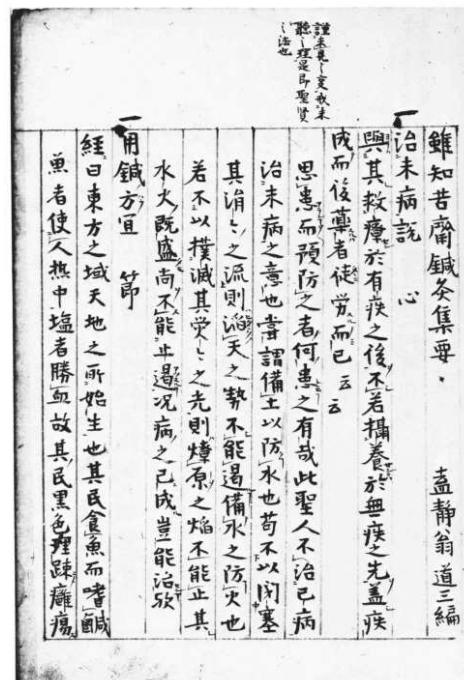 謹未見之変戒未
聴之理是即聖賢
之治也
雖知苦齋鍼灸集要。 盍静翁道三編
一治未病説 心
與其救療於有疾之後不若攝養於無疾之先盖疾
成而後藥者徒労而已云云
思患而預防之者何患之有哉此聖人不治已病
治未病之意也嘗謂備土以防水也苟不以閉塞
其涓々之流則滔天之勢不能遏備水之防火也
若不以撲滅其熒々之光則燎原之焰不能止其
水火既盛尚不能止遏况病之已成豈能治欤
一用鍼方宜 節
經曰東方之域天地之所始生也其民食魚而嗜鹹
魚者使人热中塩者勝血故其民黒色理踈癰瘍